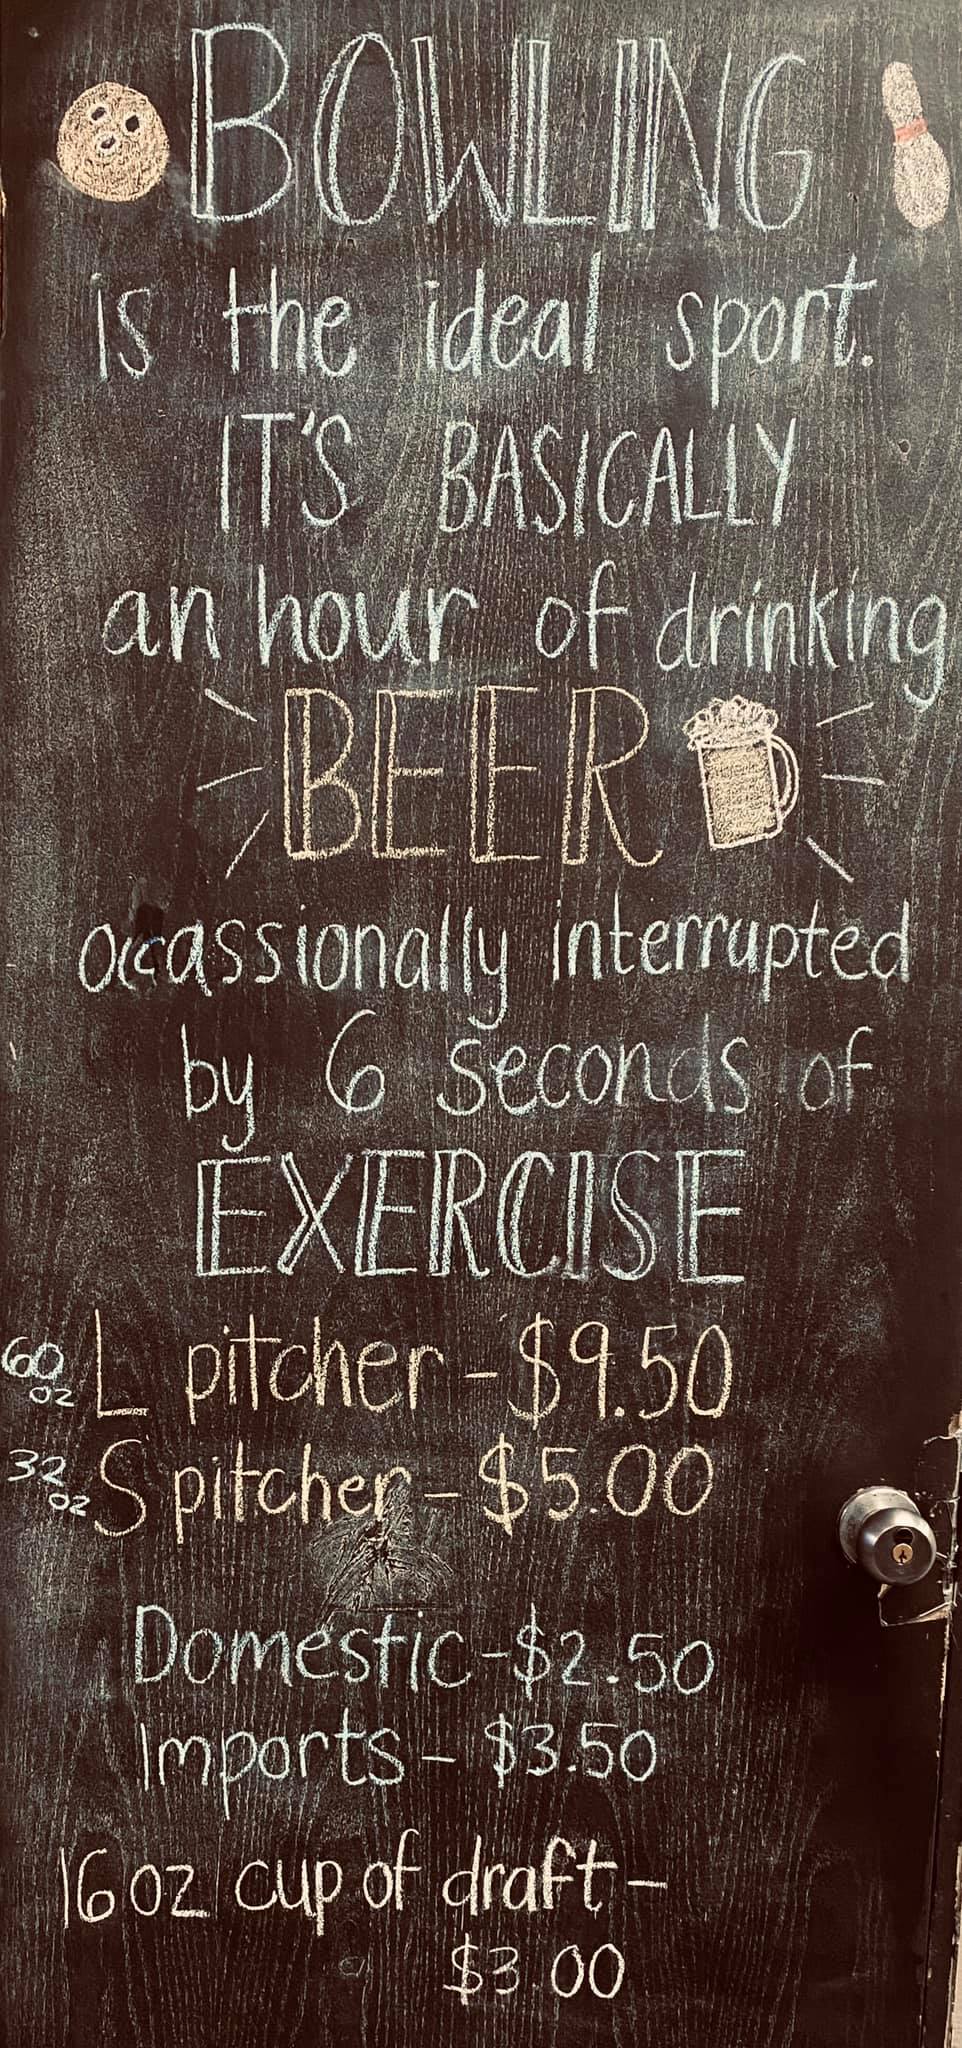 BOWLING
is the ideal sport.
IT'S BASICALLY
an hour of drinking
BEER
occassionally interrupted
by 6 seconds of
EXERCISE
60 oz L pitcher - $9.50
32 oz S pitcher - $5.00
Domestic - $2.50
Imports - $3.50
16 oz cup of draft -
$3.00